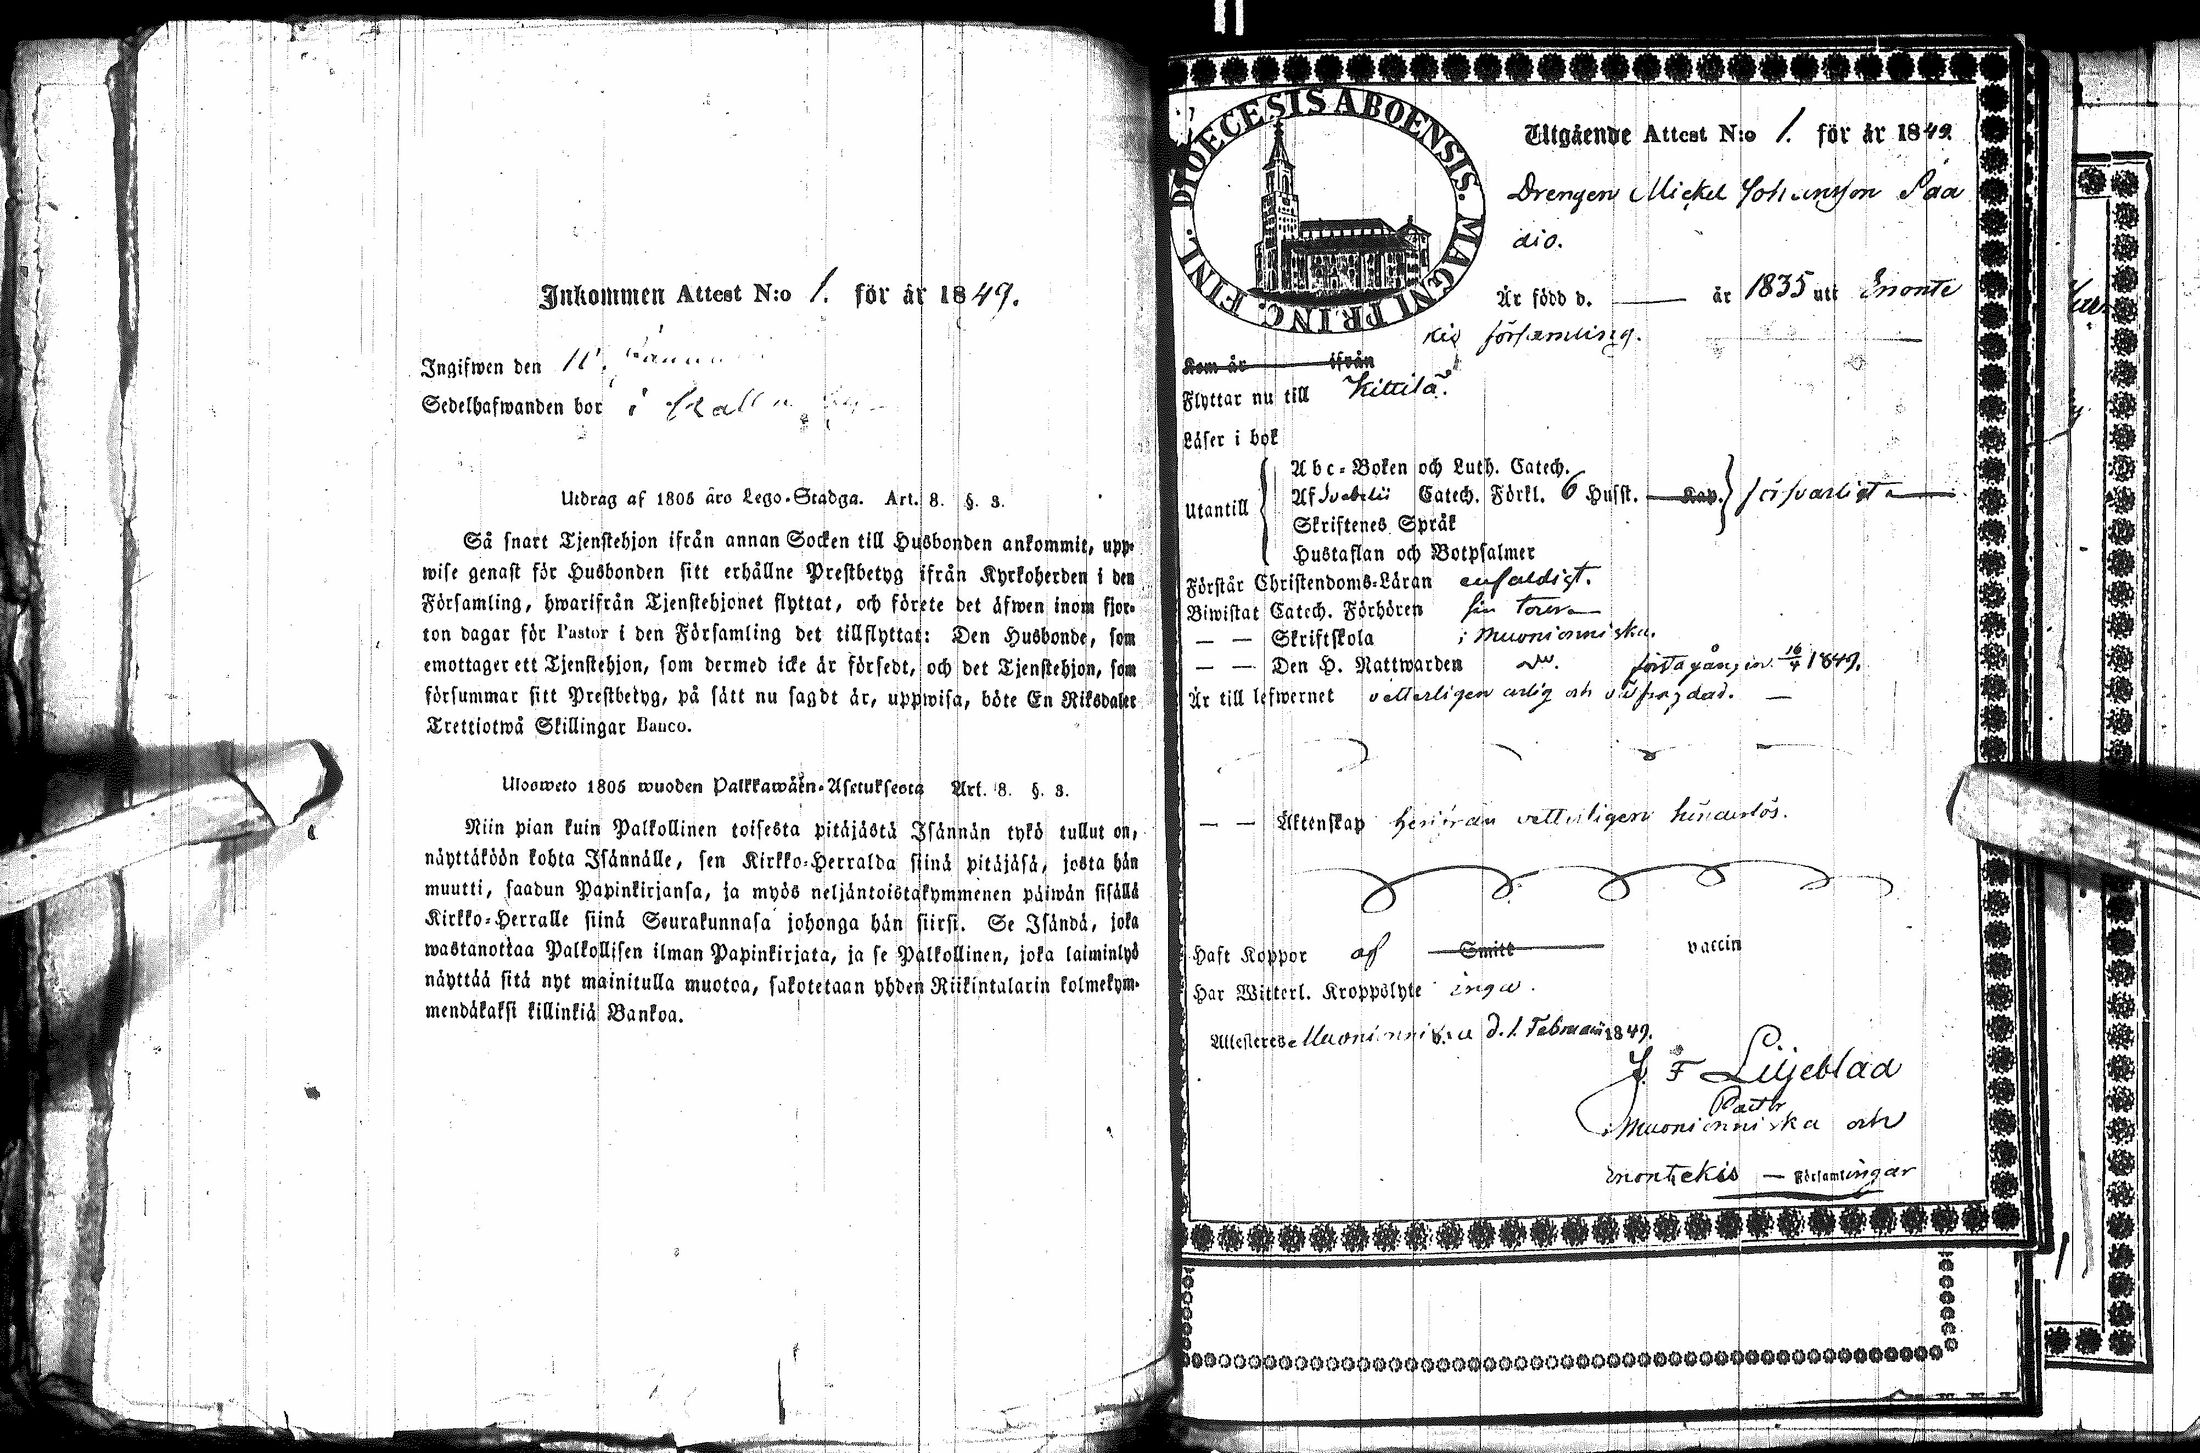 Inkommen Attest N:o 1. för år 1849.
Ingifwen den
Sedelhafwanden bor i
Utdrag af 1805 års Lego-Stadga. Art. 8. §. 3.
Så snart Tjenstehjon ifrån annan Socken till Husbonden ankommit, upp-
wise genast för Husbonden sitt erhållne Prestbetyg ifrån Kyrkoherden i den
Församling, hwarifrån Tjenstehjonet flyttat, och förete det äfwen inom fjor-
ton dagar för Pastor i den Församling det tillflyttat: Den Husbonde, som
emottager ett Tjenstehjon, som dermed icke är försedt, och det Tjenstehjon, som
försummar sitt Prestbetyg, på sätt nu sagdt är, uppwisa, böte En Riksdaler
Trettiotwå Skillingar Banco.
Ulosweto 1805 wuoden Palkkawäen-Asetuksesta Art. 8. §. 3.
Niin pian kuin Palkollinen toisesta pitäjästä Isännän tykö tullut on,
näyttäköön kohta Isännälle, sen Kirkko-Herralda siinä pitäjäsä, josta hän
muutti, saadun Papinkirjansa, ja myös neljäntoistakymmenen päiwän sisällä
Kirkko-Herralle siinä Seurakunnasa johonga hän siirsi. Se Isändä, joka
wastanottaa Palkollisen ilman Papinkirjata, ja se Palkollinen, joka laiminlyö
näyttää sitä nyt mainitulla muotoa, sakotetaan yhden Riikintalarin kolmekym-
mendäkaksi killinkiä Bankoa.
DIOECESIS ABOENSIS. MAGNI PRINC. FINL.
Utgående Attest N:o 1. för år 1849.
Drengen Mickel Johansson Paa
dio.
Är född d. — år 1835 uti Enonte
kis församling.
Kom år ifrån
Flyttar nu till Kittilä.
Läser i bok
Utantill
Abc-Boken och Luth. Catech.
Af Svebelii Catech. Förkl. 6 Husst. Kap. försvarligt
Skriftenes Språk
Hustaflan och Botpsalmer
Förstår Christendoms-Läran enfaldigt.
Biwistat Catech. Förhören
— — Skriftskola i Muonionniska.
— — Den H. Nattwarden första gången 16/4 1849.
Är till lefwernet vetterligen ärlig och
— — Äktenskap härifrån vetterligen hinderlös.
Haft Koppor af Smitt vaccin
Har Witterl. Kroppslyte inga.
Attesteres Muonionniska d. 1 Februarii 1849.
J. F Liljeblad
Pastor
Muonionniska och
Enontekis — Församlingar